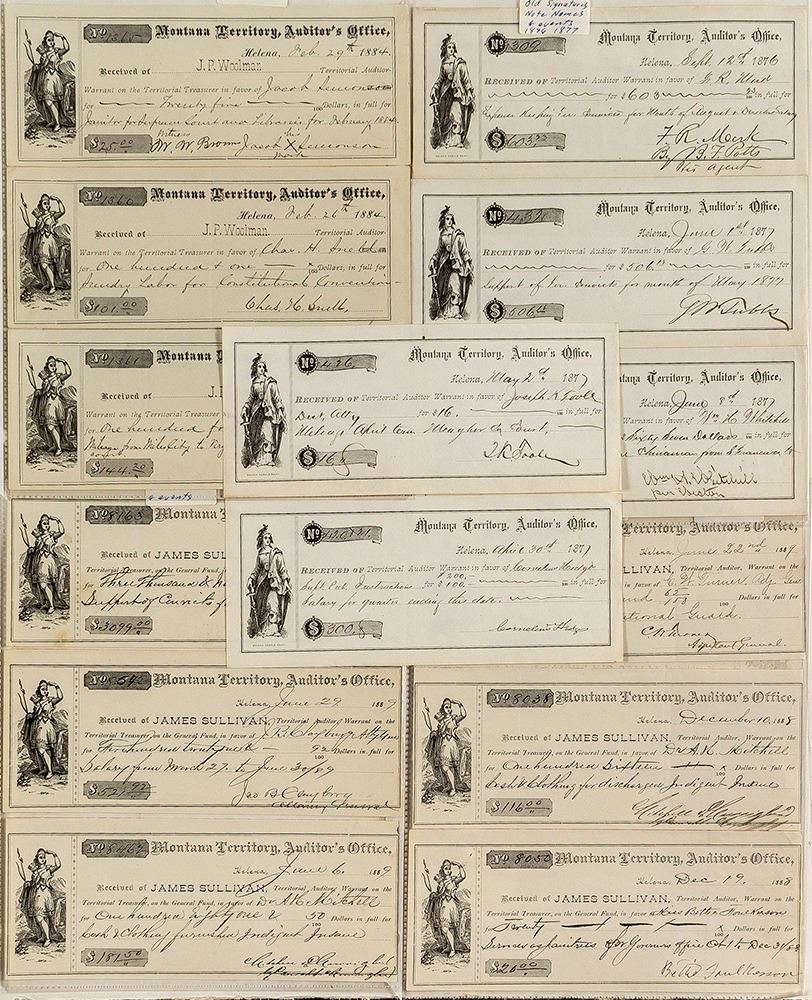 No 1365
Montana Territory, Auditor's Office,
Helena, Feb. 29th 1884.
Received of J. P. Woolman Territorial Auditor-
Warrant on the Territorial Treasurer in favor of Jacob Simonson
for Twenty five 100 Dollars, in full for
Janitor for Supreme Court and Libraries for February 1884.
$25.00
Witness
W. W. Brown
Jacob X Simonson
his
mark
No 1360
Montana Territory, Auditor's Office,
Helena, Feb. 26th 1884.
Received of J. P. Woolman. Territorial Auditor-
Warrant on the Territorial Treasurer in favor of Chas. H. Snell
for One hundred & one 100 Dollars, in full for
Sundry Labor for Constitutional Convention
$101.00
Chas. H. Snell,
No 1361
Montana T
Received of J.
Warrant on the Territorial Treasurer
for One hundred fo
Mileage from Miles City to
$144.20
6 events
No 8163
Montana T
Received of JAMES SUL
Territorial Treasurer, on the General Fund,
for Three Thousand &
Support of Convicts
$3099.00
No 8542
Montana Territory, Auditor's Office,
Helena, June 29 1889
Received of JAMES SULLIVAN, Territorial Auditor, Warrant on the
Territorial Treasurer, on the General Fund, in favor of J. B. Clayberg Atty Gen
for Five hundred twenty one & 92 Dollars in full for
Salary from March 27. to June 30/89
$521.92
Jas B Clayberg
Attorney General
No 8462
Montana Territory, Auditor's Office,
Helena, June 6. 1889
Received of JAMES SULLIVAN, Territorial Auditor, Warrant on the
Territorial Treasurer, on the General Fund, in favor of Dr A. H. Mitchell
for One hundred eighty one & 50 Dollars in full for
Cash & Clothing furnished Indigent Insane
$181.50
Old Signatures
Note Names
& events
1876 1877
No 309
Montana Territory, Auditor's Office,
Helena, Sept. 12th 1876
RECEIVED OF Territorial Auditor Warrant in favor of
for $603 in full for
Expense Keeping Ter Convicts for Month of August
$603
B. F. Potts
his agent
No 432
Montana Territory, Auditor's Office,
Helena, June 1st 1877
RECEIVED OF Territorial Auditor Warrant in favor of G. W. Tubbs
for $506 in full for
Support of Ter Convicts for month of May 1877
$506
G W Tubbs
No 426
Montana Territory, Auditor's Office,
Helena, May 2d 1877
RECEIVED OF Territorial Auditor Warrant in favor of Joseph K Toole
Dist. Atty for $16. in full for
Mileage April term Meagher Co Court,
$16
J. K. Toole
tana Territory, Auditor's Office,
Helena, June 8th 1877
Warrant in favor of Wm H Whitehill
Sixty Seven Dollars in full for
Chinaman from S Francisco
No 420 & 21
Montana Territory, Auditor's Office,
Helena, April 30th 1877
RECEIVED OF Territorial Auditor Warrant in favor of Cornelius Hedges
Supt. Pub. Instructions for $200. $100. in full for
Salary for quarter ending this date.
$300
Cornelius Hedges
Territory, Auditor's Office,
Helena, June 22nd 1889
LLIVAN, Territorial Auditor, Warrant on the
in favor of C. W. Turner Adj. Gen
100 Dollars in full for
National Guard.
C. W. Turner
Adjutant General.
No 8038
Montana Territory, Auditor's Office,
Helena, December 10. 1888
Received of JAMES SULLIVAN, Territorial Auditor, Warrant on the
Territorial Treasurer, on the General Fund, in favor of Dr A. H. Mitchell
for One hundred Sixteen 100 Dollars in full for
Cash & Clothing for discharged Indigent Insane
$116.00
No 8050
Montana Territory, Auditor's Office,
Helena, Dec 19. 1888
Received of JAMES SULLIVAN, Territorial Auditor, Warrant on the
Territorial Treasurer, on the General Fund, in favor of Miss Bettie Foulkeson
for Twenty 100 Dollars in full for
Services as janitress of Governors office Oct 1 to Dec 31/88
$20.00